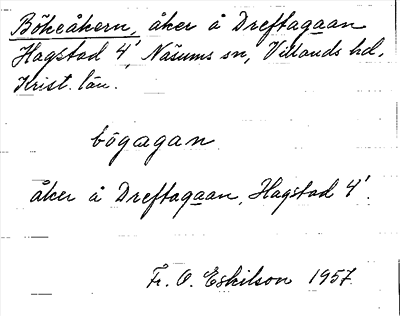 Bökeåkern, åker å Dreftagaan
Hagstad 4¹, Näsums sn, Villands hd,
Krist. län.
bögagan
åker å Dreftagaan, Hagstad 4¹.
Fr. O. Eskilson 1957.